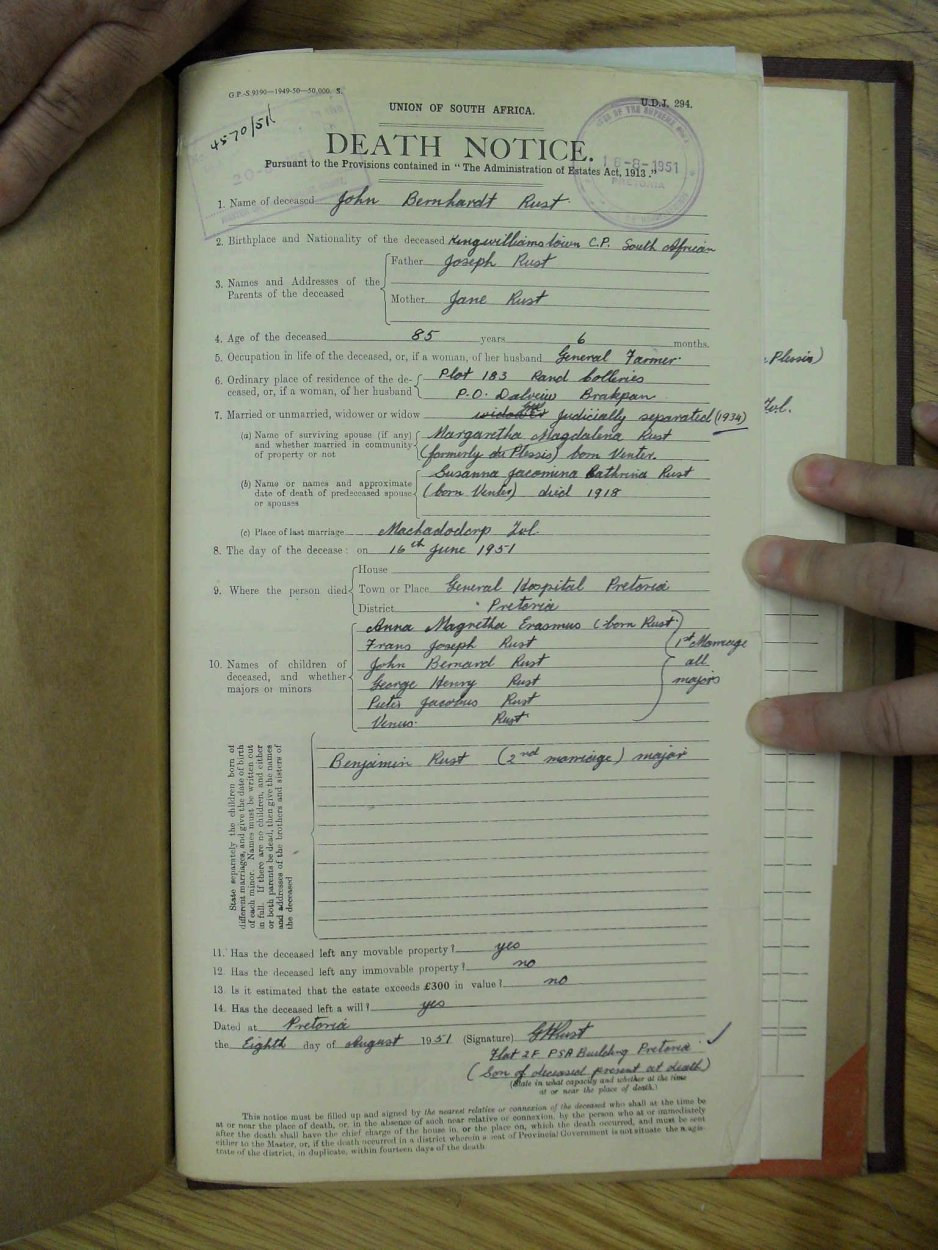 G.P.-S.9390—1949-50—50,000. S.
UNION OF SOUTH AFRICA.
U.D.J. 294.
4570/51
DEATH NOTICE.
Pursuant to the Provisions contained in "The Administration of Estates Act, 1913."
16-8-1951
PRETORIA
1. Name of deceased John Bernhardt Rust
2. Birthplace and Nationality of the deceased Kingwilliamstown C.P. South African
3. Names and Addresses of the Parents of the deceased
Father Joseph Rust
Mother Jane Rust
4. Age of the deceased 85 years 6 months.
5. Occupation in life of the deceased, or, if a woman, of her husband General Farmer
6. Ordinary place of residence of the de-
ceased, or, if a woman, of her husband
Plot 183 Rand Colleries
P.O. Dalview Brakpan
7. Married or unmarried, widower or widow Judicially separated (1934)
(a) Name of surviving spouse (if any)
and whether married in community
of property or not
Margaretha Magdalena Rust
(formerly du Plessis) born Venter.
(b) Name or names and approximate
date of death of predeceased spouse
or spouses
Susanna Jacomina Cathrina Rust
(born Venter) died 1918
(c) Place of last marriage Machadodorp Tvl.
8. The day of the decease: on 16th June 1951
9. Where the person died
House
Town or Place General Hospital Pretoria
District Pretoria
10. Names of children of
deceased, and whether
majors or minors
Anna Magretha Erasmus (born Rust)
Frans Joseph Rust
John Bernard Rust
George Henry Rust
Pieter Jacobus Rust
Venus Rust
1st Marriage
all
majors
State separately the children born of
different marriages, and give the date of birth
of each minor. Names must be written out
in full. If there are no children, and either
or both parents be dead, then give the names
and addresses of the brothers and sisters of
the deceased
Benjamin Rust (2nd marriage) major
11. Has the deceased left any movable property? yes
12. Has the deceased left any immovable property? no
13. Is it estimated that the estate exceeds £300 in value? no
14. Has the deceased left a will? yes
Dated at Pretoria
the Eighth day of August 1951 (Signature) GHRust
Flat 2F PSA Building Pretoria
(Son of deceased present at death)
(State in what capacity and whether at the time
at or near the place of death.)
This notice must be filled up and signed by the nearest relative or connexion of the deceased who shall at the time be
at or near the place of death, or, in the absence of such near relative or connexion, by the person who at or immediately
after the death shall have the chief charge of the house in, or the place on, which the death occurred, and must be sent
either to the Master, or, if the death occurred in a district wherein a seat of Provincial Government is not situate the magis-
trate of the district, in duplicate, within fourteen days of the death
Plessis)
Tvl.